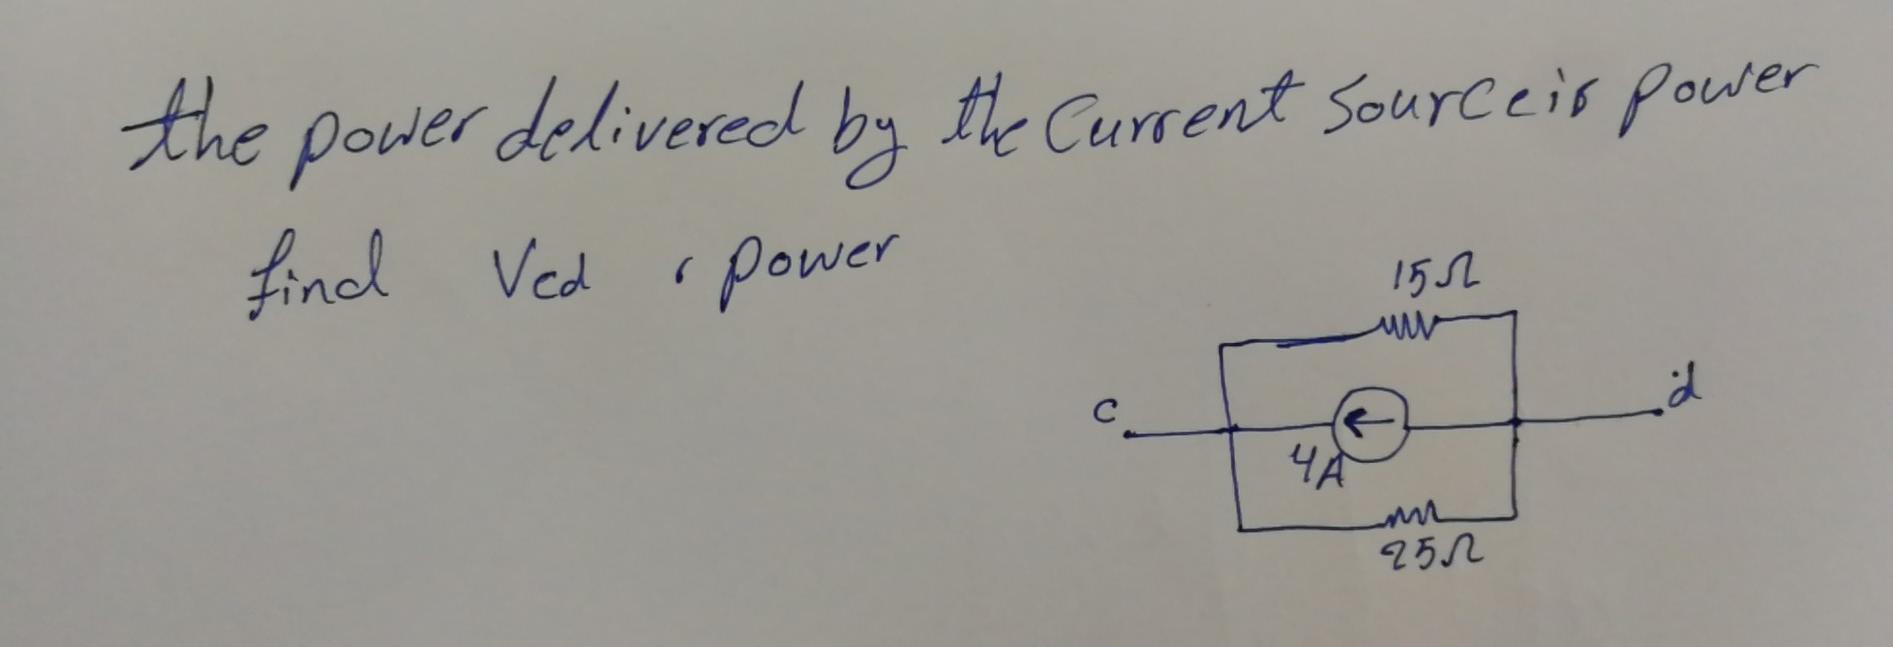 the power delivered by the Current Source is power
find Vcd , power
15Ω
c
d
4A
25Ω